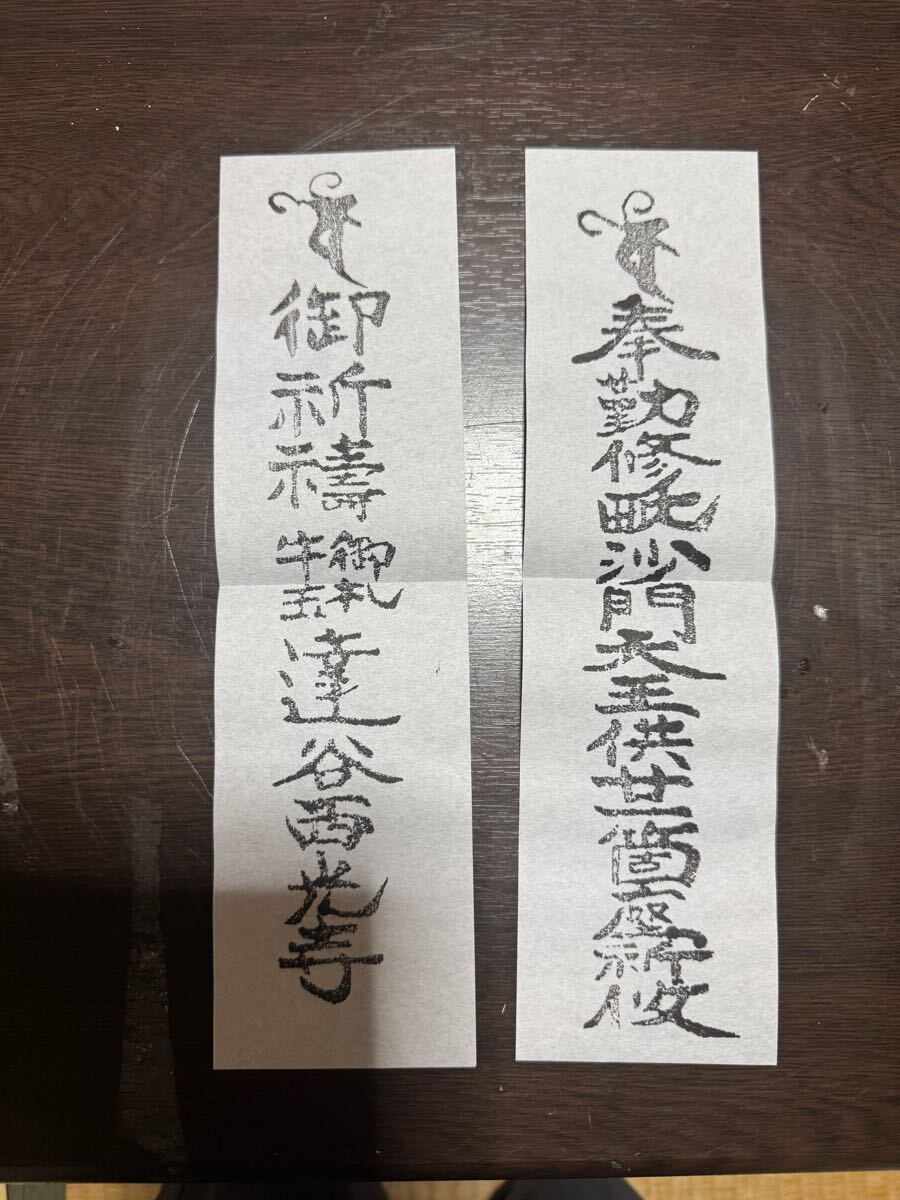 奉勤修毗沙門天王供廿一箇座祈攸
御祈禱御札牛玉達谷西光寺